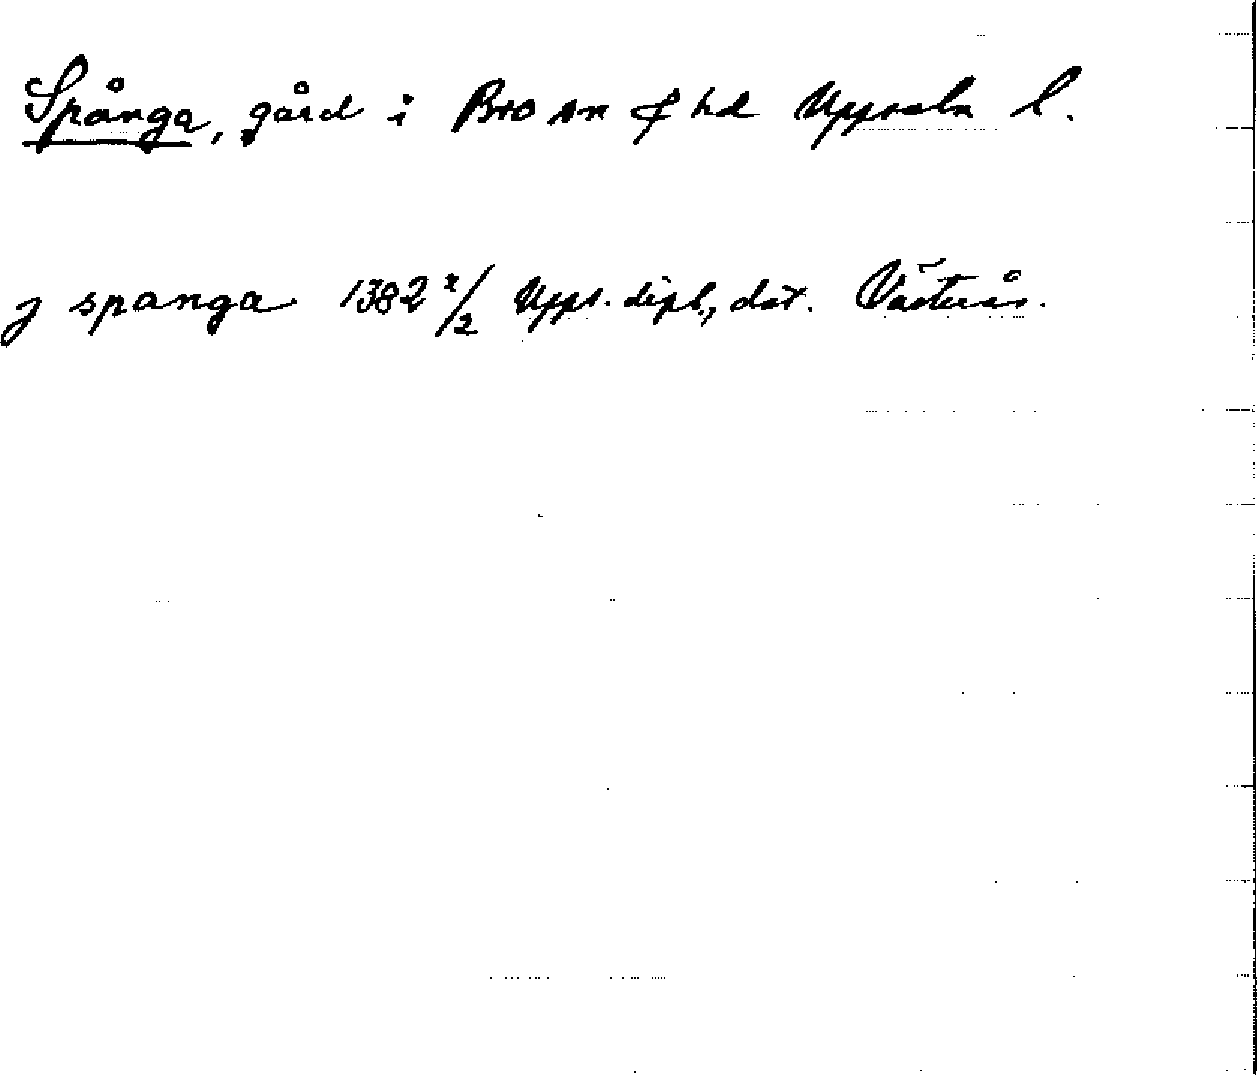 Spånga, gård i Bro sn & hd Uppsala l.
j spanga 1382 2/2 Upps. dipl., dat. Västerås.